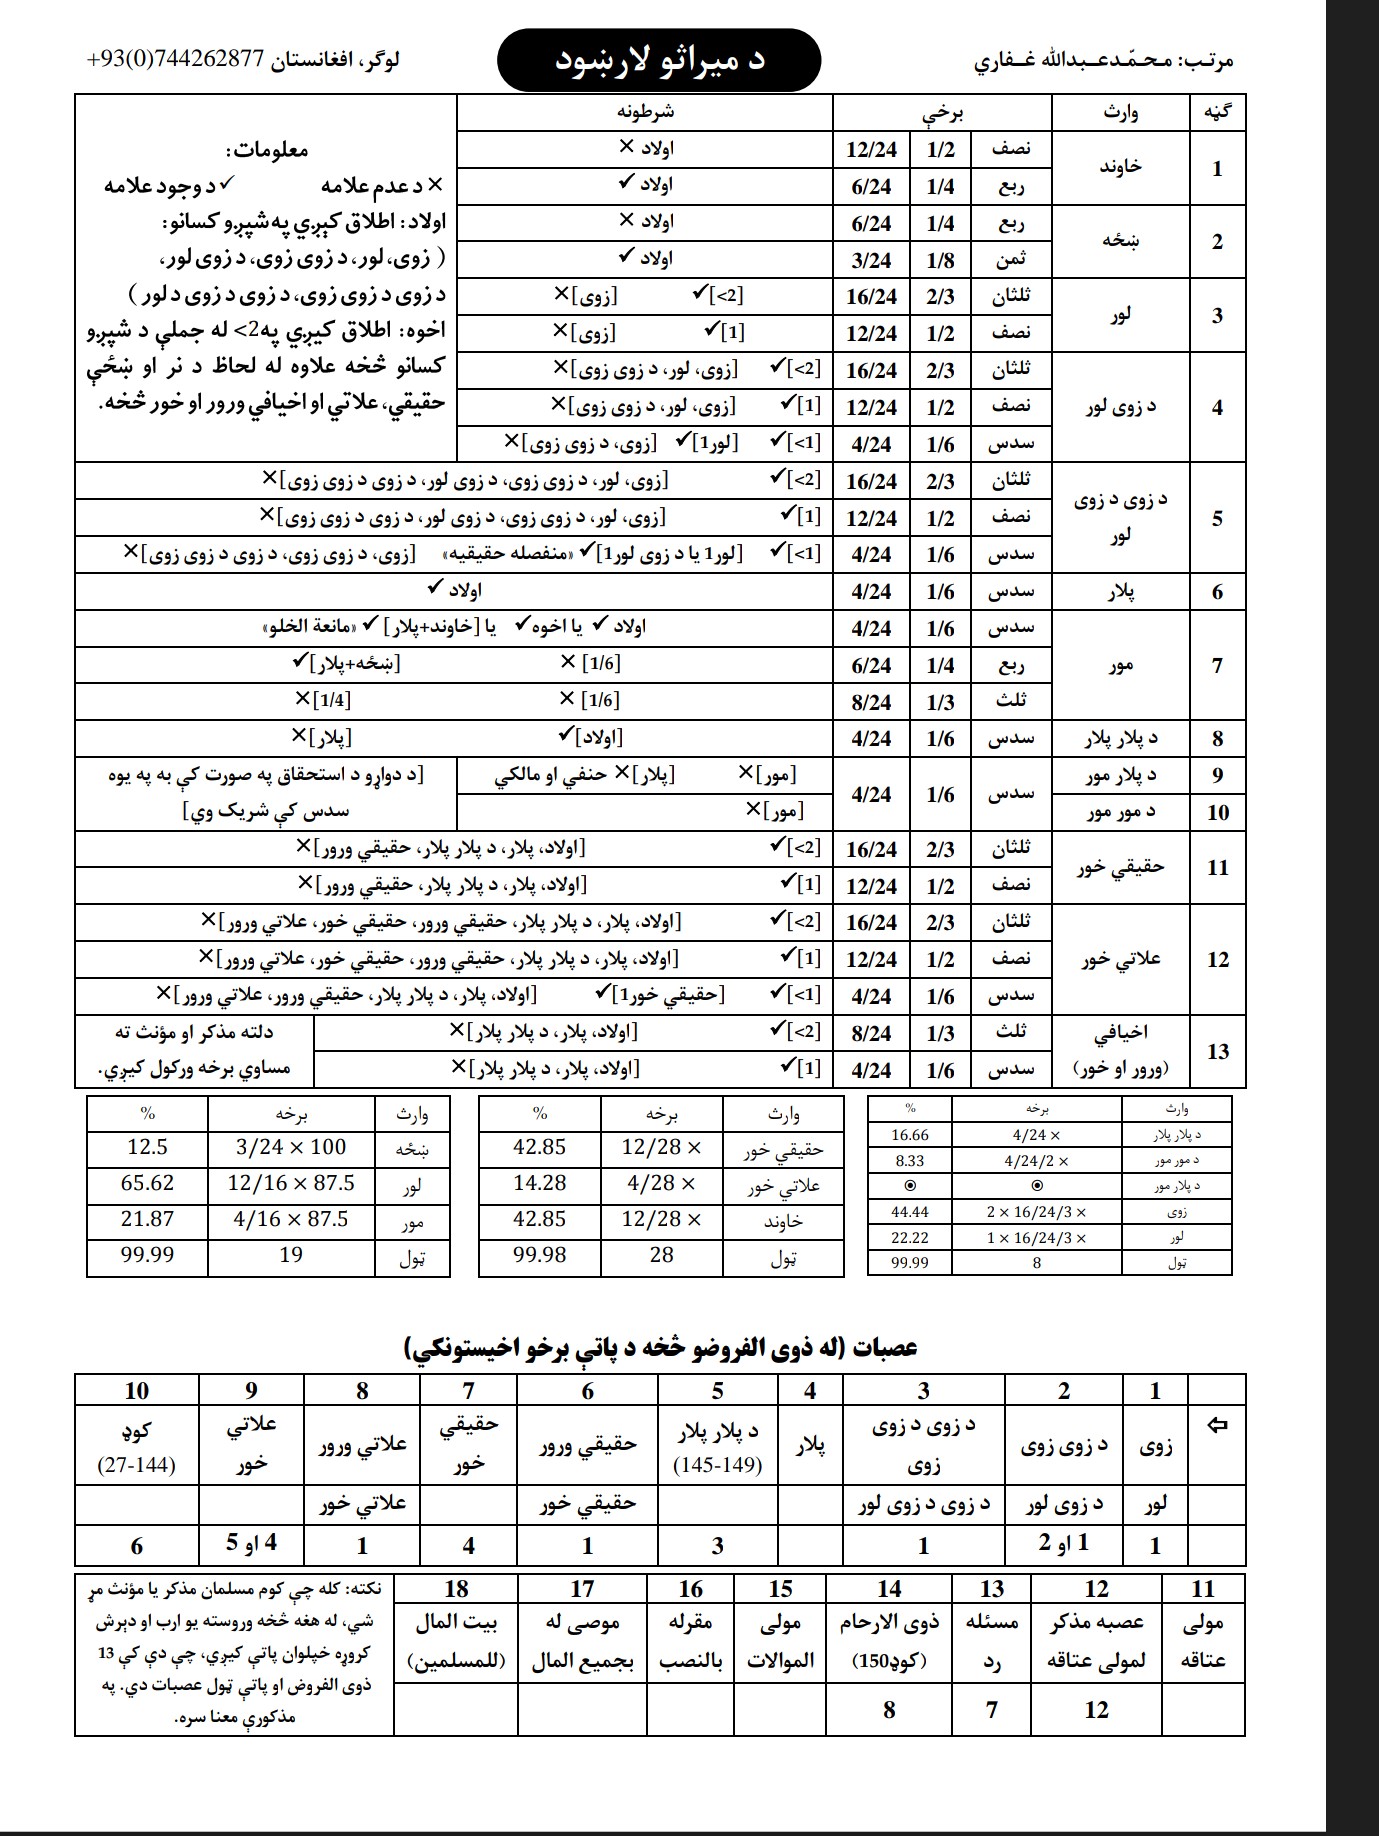 مرتب: محمّدعبدالله غفاري
د میراثو لارښود
لوګر، افغانستان 744262877(0)93+
ګڼه | وارث | برخې | شرطونه
1 | خاوند | نصف | 1/2 | 12/24 | اولاد ×
ربع | 1/4 | 6/24 | اولاد ✓
2 | ښځه | ربع | 1/4 | 6/24 | اولاد ×
ثمن | 1/8 | 3/24 | اولاد ✓
3 | لور | ثلثان | 2/3 | 16/24 | [2>]✓ [زوی]×
نصف | 1/2 | 12/24 | [1]✓ [زوی]×
4 | د زوی لور | ثلثان | 2/3 | 16/24 | [2>]✓ [زوی، لور، د زوی زوی]×
نصف | 1/2 | 12/24 | [1]✓ [زوی، لور، د زوی زوی]×
سدس | 1/6 | 4/24 | [1>]✓ [لور1]✓ [زوی، د زوی زوی]×
معلومات:
× د عدم علامه ✓ د وجود علامه
اولاد: اطلاق کېږي په شپږو کسانو:
( زوی، لور، د زوی زوی، د زوی لور،
د زوی د زوی زوی، د زوی د زوی د لور )
اخوه: اطلاق کیږي په 2> له جملې د شپږو
کسانو څخه علاوه له لحاظ د نر او ښځې
حقیقي، علاتي او اخیافي ورور او خور څخه.
5 | د زوی د زوی لور | ثلثان | 2/3 | 16/24 | [2>]✓ [زوی، لور، د زوی زوی، د زوی لور، د زوی د زوی زوی]×
نصف | 1/2 | 12/24 | [1]✓ [زوی، لور، د زوی زوی، د زوی لور، د زوی د زوی زوی]×
سدس | 1/6 | 4/24 | [1>]✓ [لور1 یا د زوی لور1]✓ «منفصله حقیقیه» [زوی، د زوی زوی، د زوی د زوی زوی]×
6 | پلار | سدس | 1/6 | 4/24 | اولاد ✓
7 | مور | سدس | 1/6 | 4/24 | اولاد ✓ یا اخوه ✓ یا [خاوند+پلار] ✓ «مانعة الخلو»
ربع | 1/4 | 6/24 | [1/6] × [ښځه+پلار]✓
ثلث | 1/3 | 8/24 | [1/6] × [1/4]×
8 | د پلار پلار | سدس | 1/6 | 4/24 | [اولاد]✓ [پلار]×
9 | د پلار مور | سدس | 1/6 | 4/24 | [مور]× [پلار]× حنفي او مالکي | [د دواړو د استحقاق په صورت کې به په یوه
10 | د مور مور | [مور]× | سدس کې شریک وي]
11 | حقیقي خور | ثلثان | 2/3 | 16/24 | [2>]✓ [اولاد، پلار، د پلار پلار، حقیقي ورور]×
نصف | 1/2 | 12/24 | [1]✓ [اولاد، پلار، د پلار پلار، حقیقي ورور]×
12 | علاتي خور | ثلثان | 2/3 | 16/24 | [2>]✓ [اولاد، پلار، د پلار پلار، حقیقي ورور، حقیقي خور، علاتي ورور]×
نصف | 1/2 | 12/24 | [1]✓ [اولاد، پلار، د پلار پلار، حقیقي ورور، حقیقي خور، علاتي ورور]×
سدس | 1/6 | 4/24 | [1>]✓ [حقیقي خور1]✓ [اولاد، پلار، د پلار پلار، حقیقي ورور، علاتي ورور]×
13 | اخیافي (ورور او خور) | ثلث | 1/3 | 8/24 | [2>]✓ [اولاد، پلار، د پلار پلار]× | دلته مذکر او مؤنث ته
سدس | 1/6 | 4/24 | [1]✓ [اولاد، پلار، د پلار پلار]× | مساوي برخه ورکول کیږي.
وارث | برخه | %
د پلار پلار | 4/24 × | 16.66
د مور مور | 4/24/2 × | 8.33
د پلار مور | ⦿ | ⦿
زوی | 2 × 16/24/3 × | 44.44
لور | 1 × 16/24/3 × | 22.22
ټول | 8 | 99.99
وارث | برخه | %
حقیقي خور | 12/28 × | 42.85
علاتي خور | 4/28 × | 14.28
خاوند | 12/28 × | 42.85
ټول | 28 | 99.98
وارث | برخه | %
ښځه | 3/24 × 100 | 12.5
لور | 12/16 × 87.5 | 65.62
مور | 4/16 × 87.5 | 21.87
ټول | 19 | 99.99
عصبات (له ذوی الفروضو څخه د پاتې برخو اخیستونکي)
1 | 2 | 3 | 4 | 5 | 6 | 7 | 8 | 9 | 10
⇦ | زوی | د زوی زوی | د زوی د زوی زوی | پلار | د پلار پلار (145-149) | حقیقي ورور | حقیقي خور | علاتي ورور | علاتي خور | کوډ (27-144)
لور | د زوی لور | د زوی د زوی لور | حقیقي خور | علاتي خور
1 | 1 او 2 | 1 | 3 | 1 | 4 | 1 | 4 او 5 | 6
11 | 12 | 13 | 14 | 15 | 16 | 17 | 18
مولی عتاقه | عصبه مذکر لمولی عتاقه | مسئله رد | ذوی الارحام (کوډ150) | مولی الموالات | مقرله بالنصب | موصی له بجمیع المال | بیت المال (للمسلمین)
12 | 7 | 8
نکته: کله چې کوم مسلمان مذکر یا مؤنث مړ
شي، له هغه څخه وروسته یو ارب او دېرش
کروړه خپلوان پاتې کیږي، چې دې کې 13
ذوی الفروض او پاتې ټول عصبات دي. په
مذکورې معنا سره.